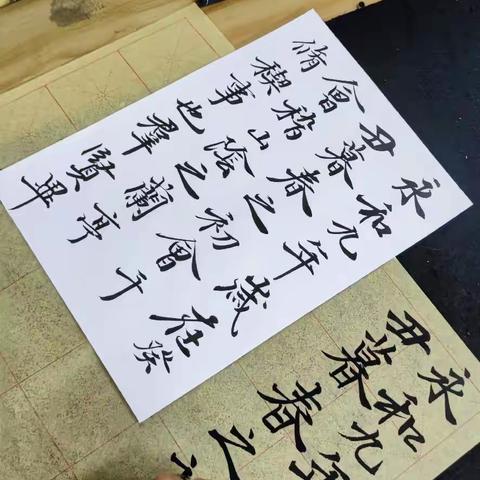 永和九年歲在癸
丑暮春之初會于
會稽山陰之蘭亭
脩禊事也羣賢畢
永和九年
丑暮春之